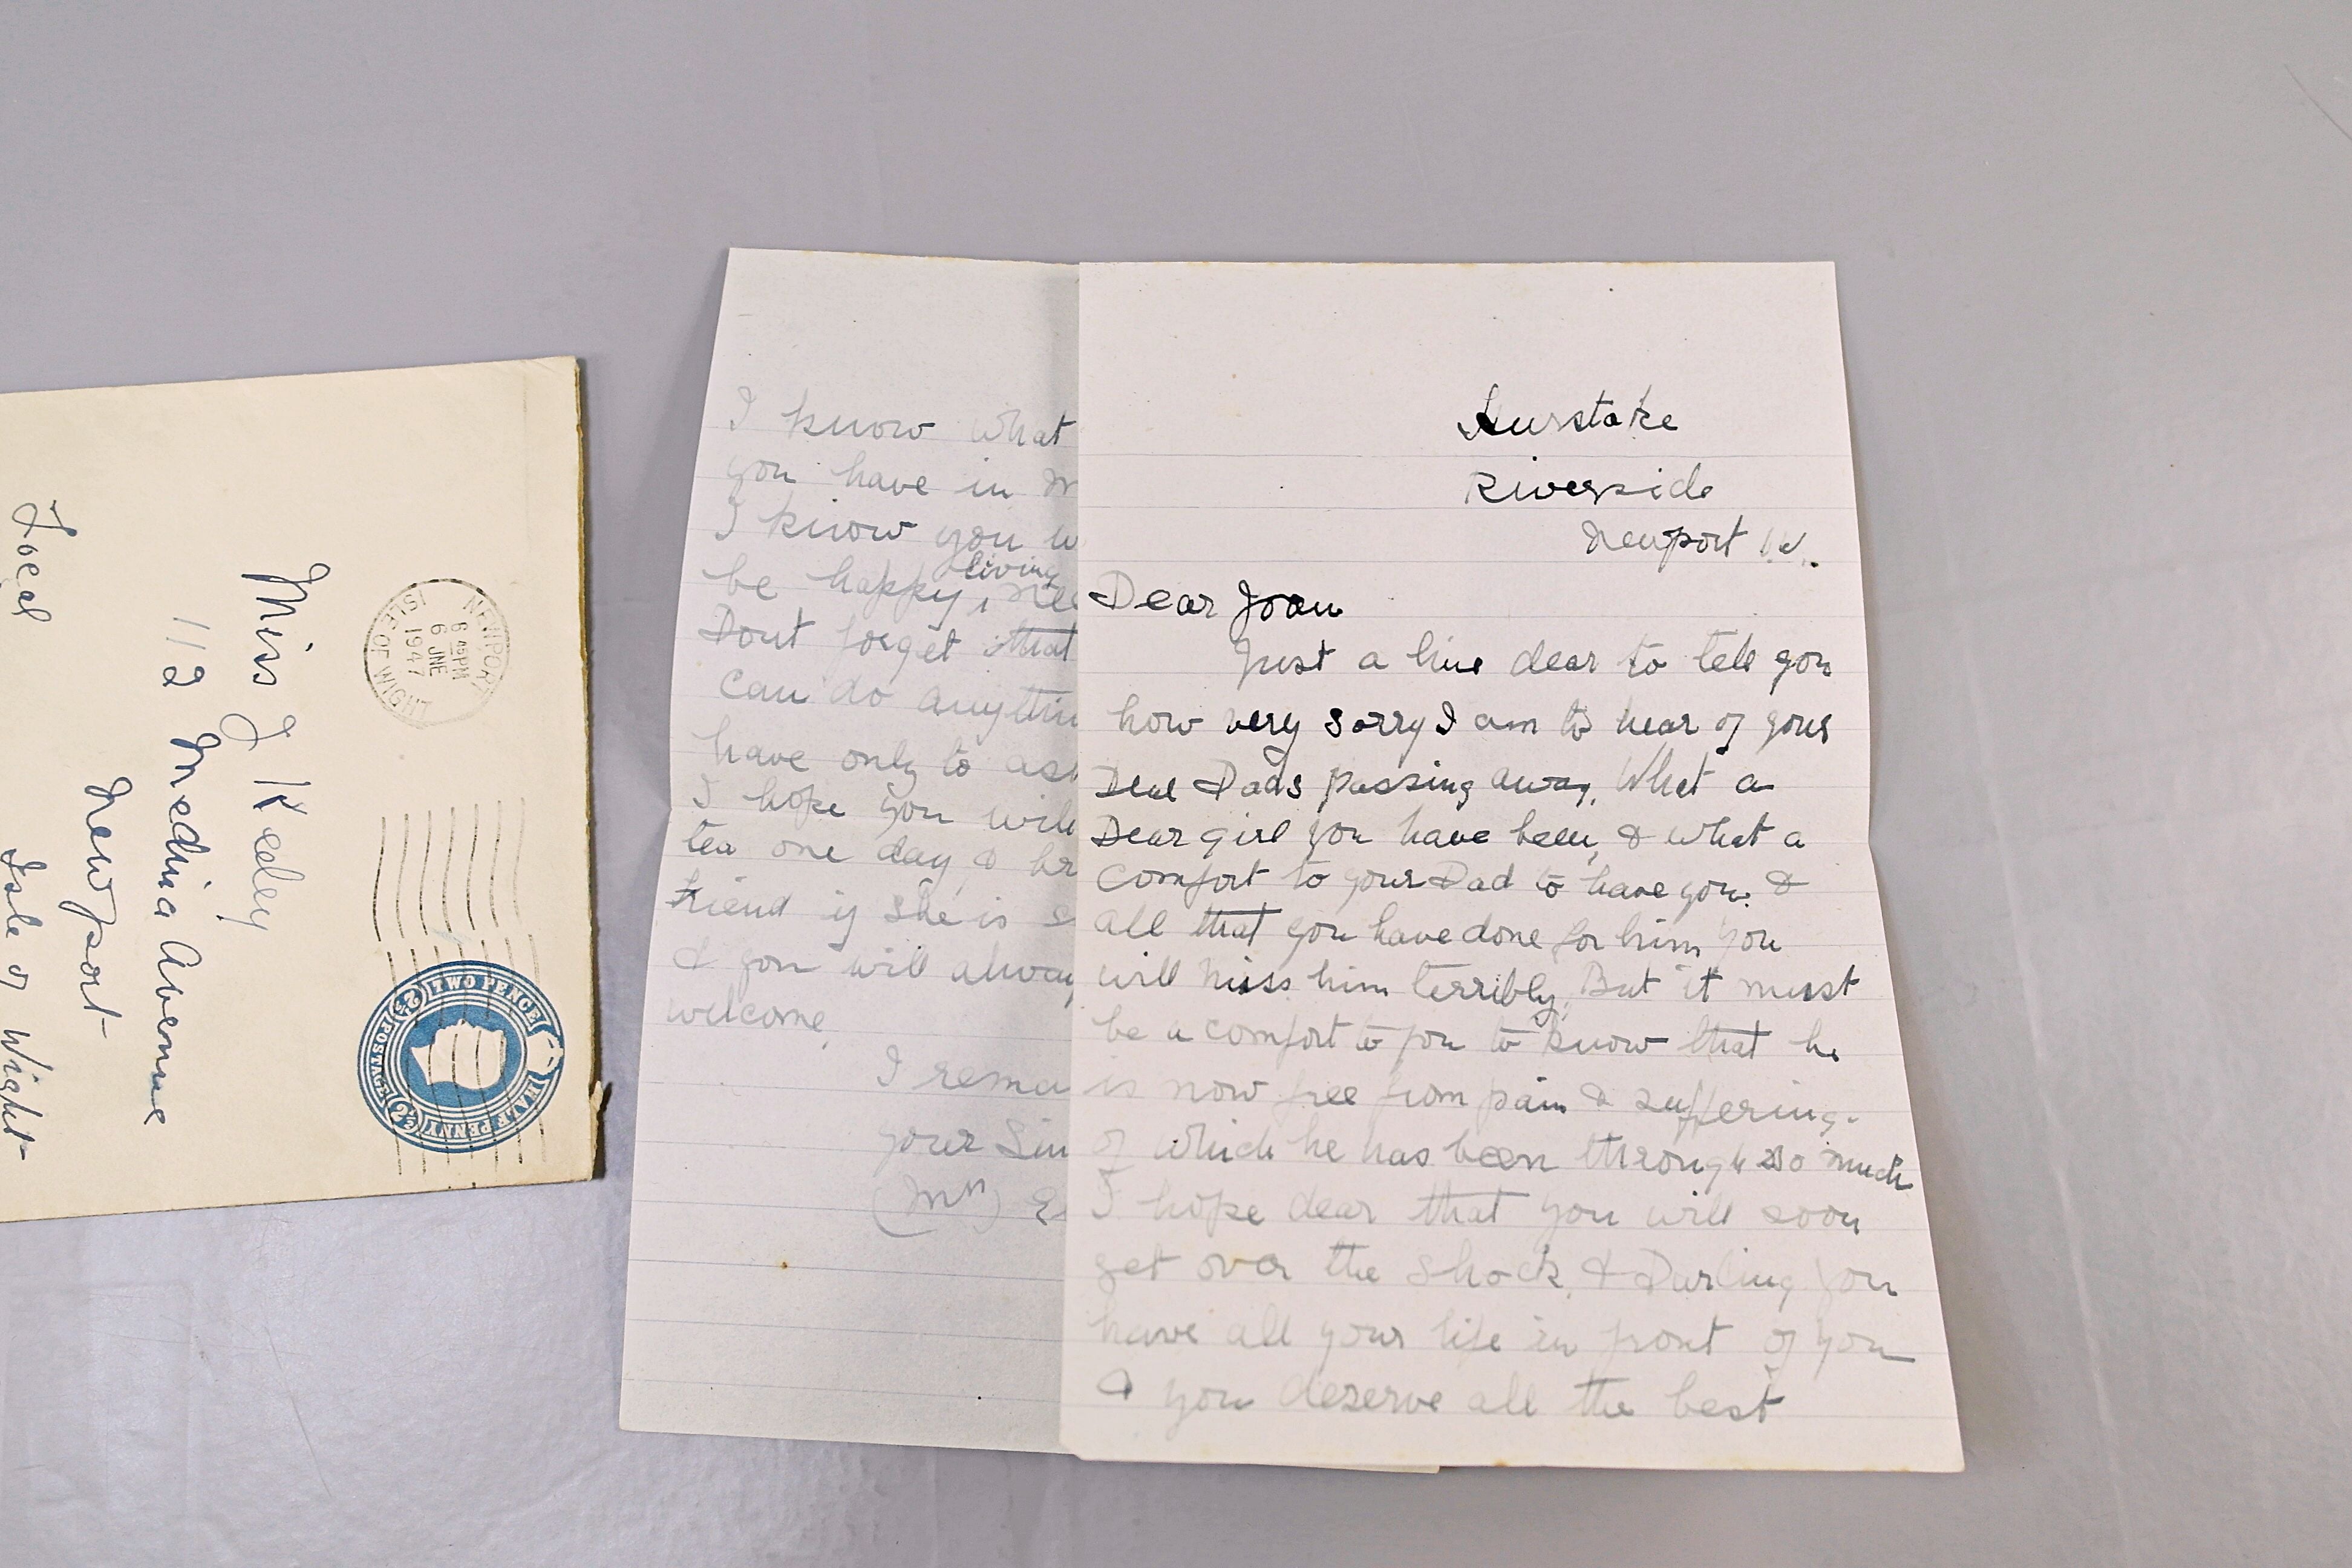 Local
Miss J Kedey
112 Medina Avenue
Newport
Isle of Wight
NEWPORT
6 45 PM
6 JNE
1947
ISLE OF WIGHT
TWO PENCE
HALF PENNY
POSTAGE
2½
2½
I know what
you have in
I know you w
be happy, living
Dont forget that
can do anythin
have only to as
I hope you will
tea one day, & br
friend if she is
& you will alway
welcome,
I rema
your Sin
(Mrs) E
Riverside
Newport I.W.
Dear Joan
Just a line dear to tell you
how very sorry I am to hear of your
Dear Dads passing away. What a
Dear girl you have been, & what a
comfort to your Dad to have you. &
all that you have done for him you
will miss him terribly, But it must
be a comfort to you to know that he
is now free from pain & suffering.
of which he has been through so much
I hope dear that you will soon
get over the shock. & Darling you
have all your life in front of you
& you deserve all the best